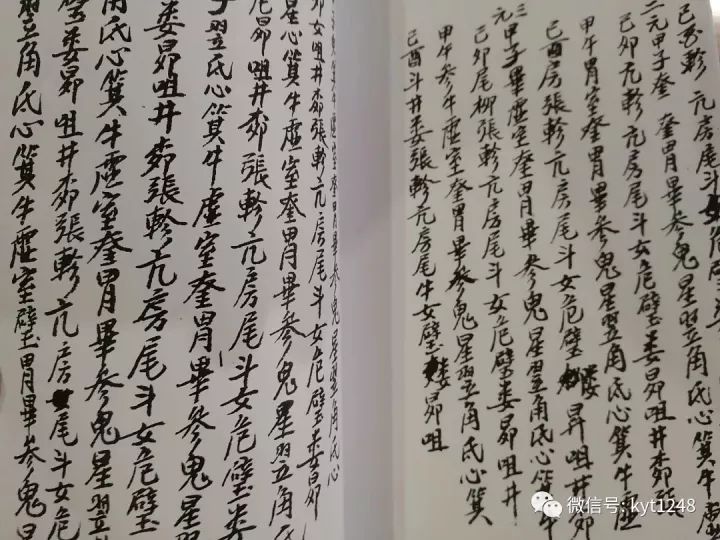 軫 亢房尾斗女
二元甲子奎 奎胃畢參鬼星翌角氏心箕牛虛
己卯亢軫亢房尾斗女危壁婁昴咀井郊張
甲午胃室奎胃畢參鬼星翌角氏心箕牛虛
己酉房張軫亢房尾斗女危壁婁昴咀井郊
三元甲子畢虛室奎胃畢參鬼星翌角氏心箕牛
己卯尾柳張軫亢房尾斗女危壁婁昴咀井
甲午參牛虛室奎胃畢參鬼星翌角氏心箕
己酉斗井婁張軫亢房尾牛女壁婁昴咀
箕牛虛室奎胃畢參鬼星翌角氏心
女咀井郊張軫亢房尾斗女危壁婁昴
星心箕牛虛室奎胃畢參鬼星翌角氏
昴咀井郊張軫亢房尾斗女危壁婁
子翌氏心箕牛虛室奎胃畢參鬼星
婁昴咀井郊張軫亢房尾斗女危壁
角氏心箕牛虛室奎胃畢參鬼星翌
婁昴咀井郊張軫亢房尾斗女危
翌角氏心箕牛虛室壁胃畢參鬼星
微信号: kyt1248